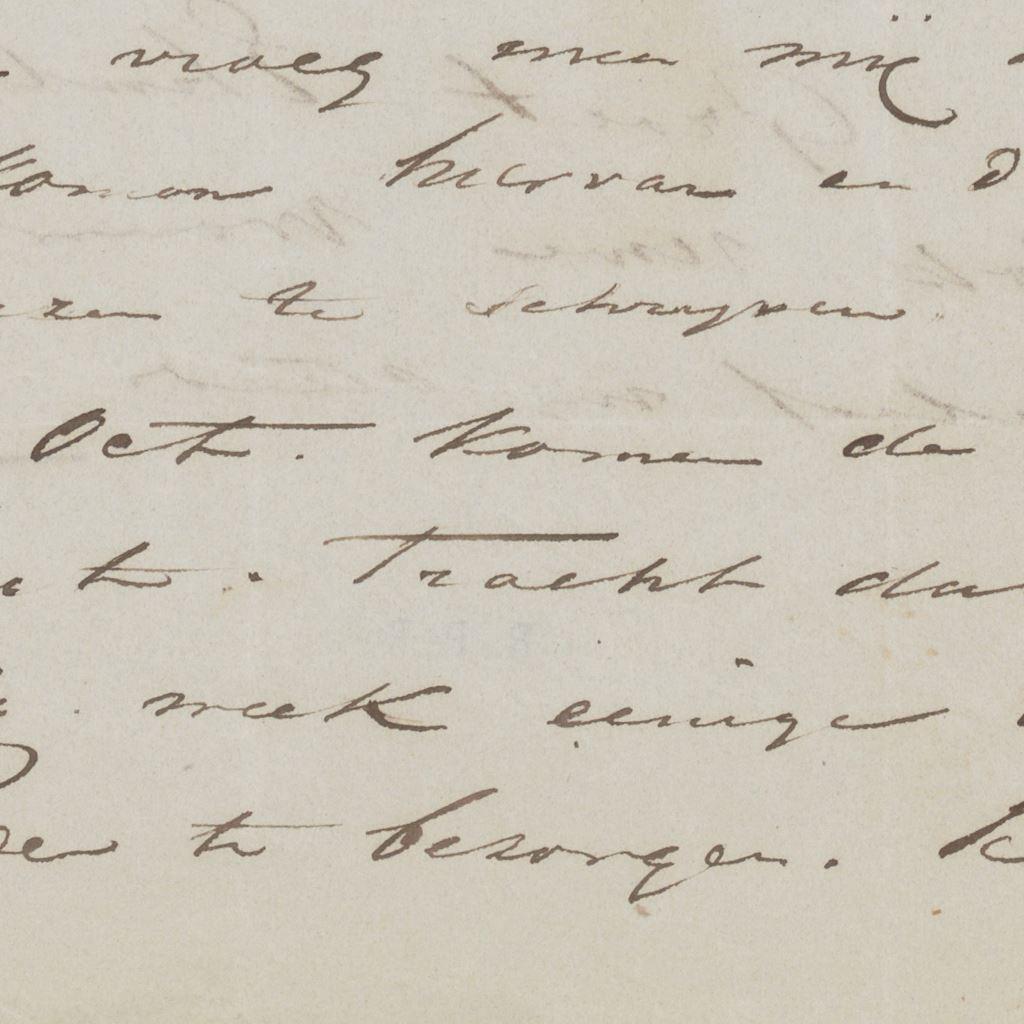 vroeg men mij
komen hiervan en
te schrijven
Oct. komen de
Tracht
week eenige
te bezorgen.